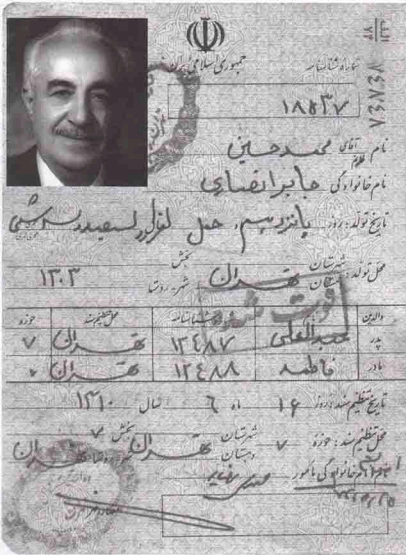 جمهوری اسلامی ایران
شماره شناسنامه
۱۸۸۳۷
الف
۷۳
۷۴۸۴۸
نام آقای محمدحسین
نام خانوادگی جابرانصاری
تاریخ تولد: روز پانزدهم حمل
۱۳۰۳
محل تولد: شهرستان تهران بخش
دهستان شهر - روستا
فوت شد
والدین شناسنامه محل تنظیم سند حوزه
پدر عبدالعلی ۱۲۴۸۷ تهران ۷
مادر فاطمه ۱۲۴۸۸ تهران
تاریخ تنظیم سند: روز ۱۶ ماه ۶ سال ۱۳۱۰
محل تنظیم سند: حوزه ۷ شهرستان تهران بخش ۷
دهستان تهران
نام و نام خانوادگی مأمور